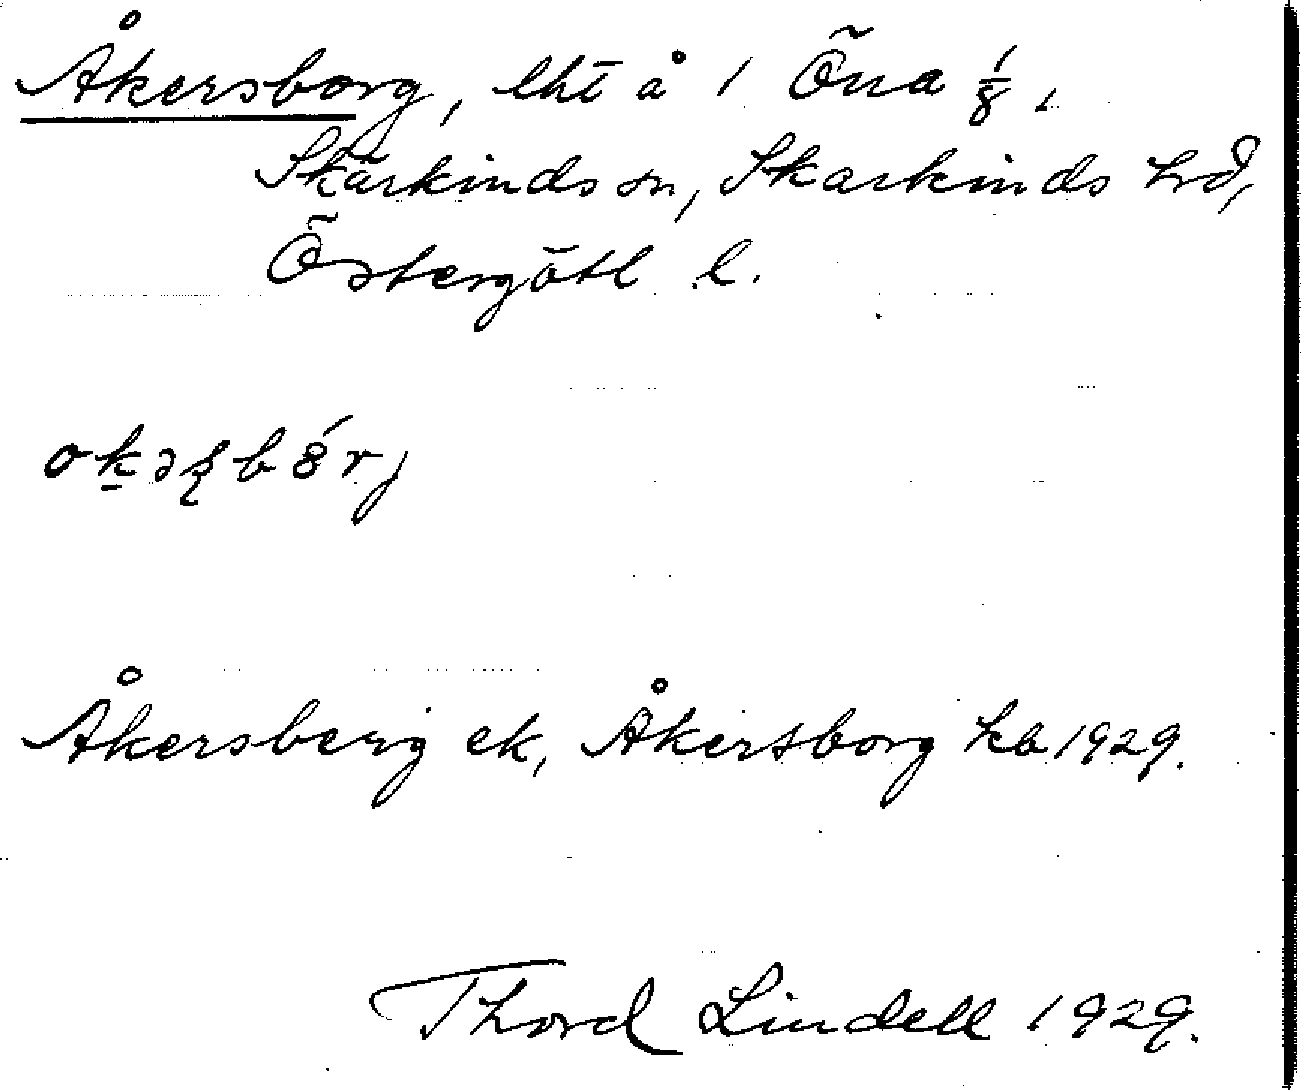 Åkersborg, lht å 1 Öna 1/8,
Skärkinds sn, Skärkinds hrd,
Östergötl. l.
Åkersberg ek, Åkersborg kb 1929.
Thord Lindell 1929.